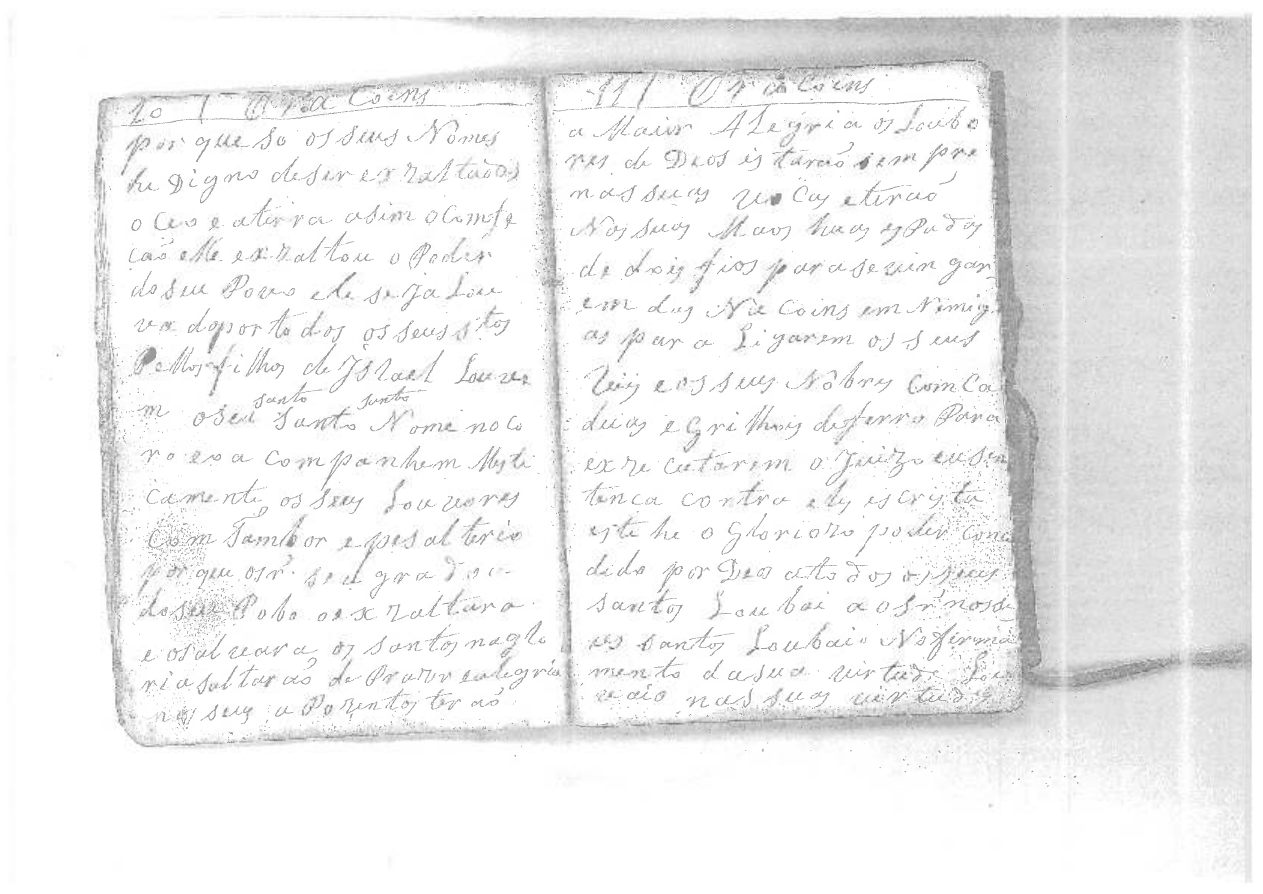 10 | Ora Coins
porque so os seus Nomes
he Digno deser exzaltados
o Ceo e aterra asim o Comfe
cão elle exzaltou o Poder
do seu Povo ele seja Lou
va do por todos os seus stos
Pellos filhos de Jsrael Louve
santo santo
m o seu Santo Nome no co
ro eo a companhem Misti
camente os seus Louvores
Com Tambor e pesalterio
porque osr̃ se agrado
do seu Pobo o exzaltara
e osalvara os santos naglo
ria saltarão de Prazer ealegria
nos seus a Pozentos terão
11 | Ora Coins
a Maior ALegria os Loubo
res de Deos is tarão sempre
nas suas vo Cas e tirão
Nas suas Maos huas esPadas
de dois fios para se vin gar
em das Na Coins em Nimig
as para Ligarem os seus
Reis e os seus Nobres Com Ca
dias e Grilhois de ferro Para
exze cutarem o Juizo eu sen
tenca contra eles escryta
este he o Gloriozo poder conce
dido por Deos a todos os seus
santos Loubai a o Sr̃ nos se
us santos Loubaio No firma
mento da sua virtude Lou
vaio nas suas virtudes